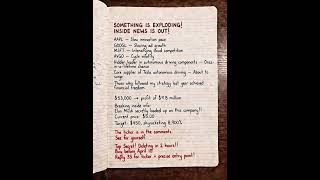 SOMETHING IS EXPLODING!
INSIDE NEWS IS OUT!
AAPL — Slow innovation pace
GOOGL — Slowing ad growth
MSFT — Intensifying cloud competition
AVGO — Cycle volatility
Hidden leader in autonomous driving components — Once-
in-a-lifetime chance
Core supplier of Tesla autonomous driving — About to
surge
Those who followed my strategy last year achieved
financial freedom
$53,000 → profit of $9.8 million
Breaking inside info:
Elon Musk secretly loaded up on this company!!
Current price: $5.00
Target: $450, skyrocketing 8,900%
The ticker is in the comments
See for yourself
Top Secret! Deleting in 2 hours!!
Buy before April 15!
Reply 35 for ticker + precise entry point!